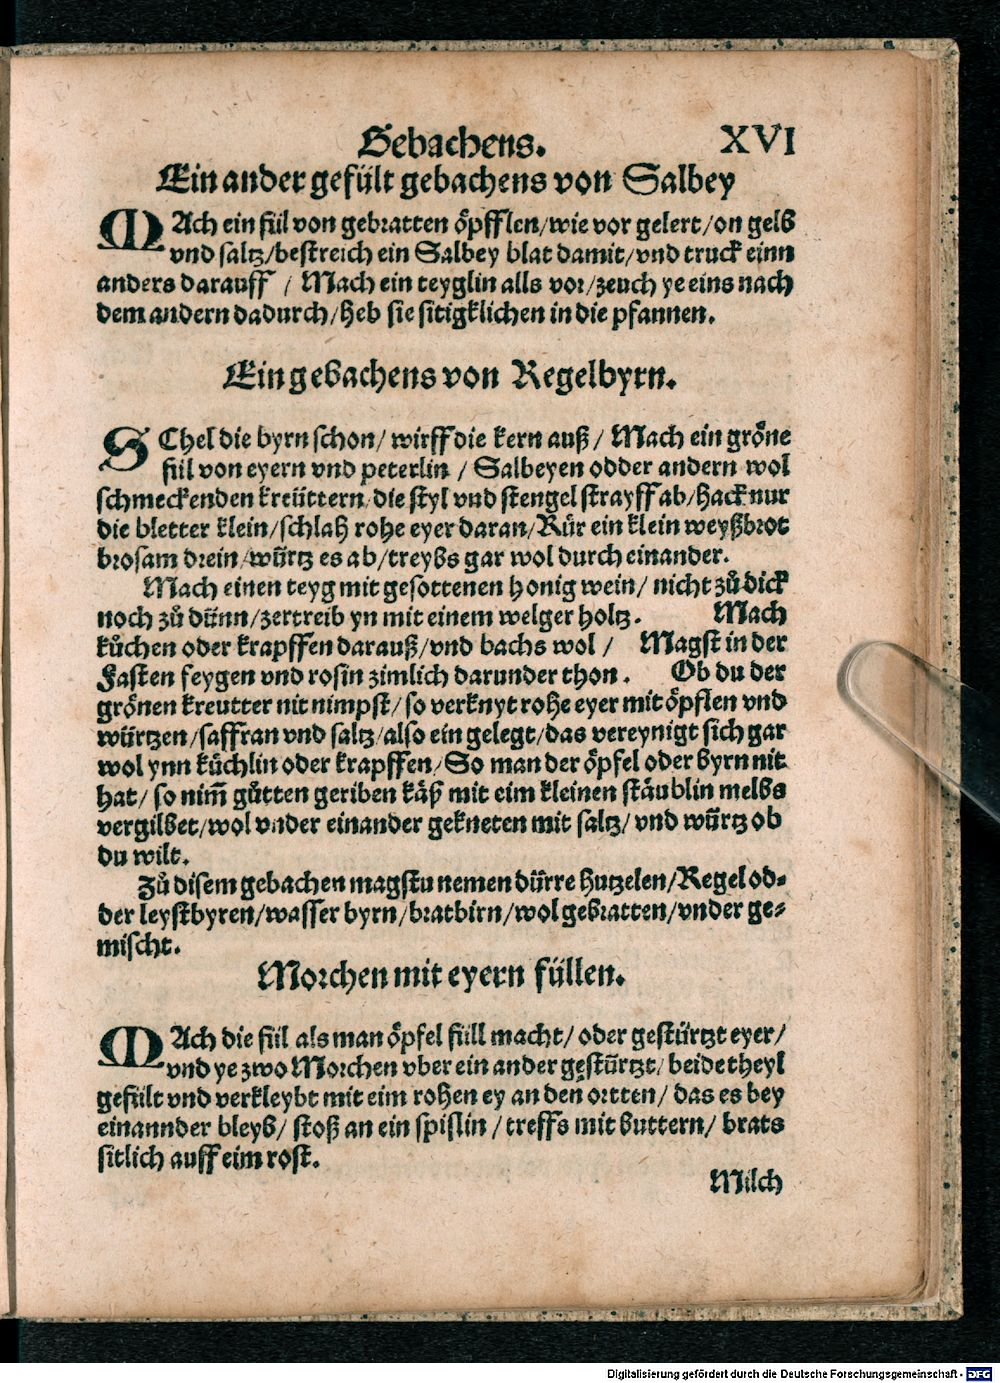 Gebachens. XVI
Ein ander gefült gebachens von Salbey
MAch ein fül von gebratten öpfflen/wie vor gelert/on gelb
vnd saltz/bestreich ein Salbey blat damit/vnd truck einn
anders darauff / Mach ein teyglin alls vor/zeuch ye eins nach
dem andern dadurch/heb sie sitigklichen in die pfannen.
Ein gebachens von Regelbyrn.
SChel die byrn schon/ wirff die kern auß/ Mach ein gröne
fül von eyern vnd peterlin / Salbeyen odder andern wol
schmeckenden kreüttern/die styl vnd stengel strayff ab/hack nur
die bletter klein/schlah rohe eyer daran/Rür ein klein weyßbrot
brosam drein/würtz es ab/treybs gar wol durch einander.
Mach einen teyg mit gesottenen honig wein/ nicht zů dick
noch zů dünn/zertreib yn mit einem welger holtz. Mach
kůchen oder krapffen darauß/vnd bachs wol / Magst in der
Fasten feygen vnd rosin zimlich darunder thon. Ob du der
grönen kreutter nit nimpst/so verknyt rohe eyer mit öpflen vnd
würtzen/saffran vnd saltz/also ein gelegt/das vereynigt sich gar
wol ynn küchlin oder krapffen/So man der öpfel oder byrn nit
hat/ so nim̃ gůtten geriben käß mit eim kleinen stäublin melbs
vergilbet/wol vnder einander gekneten mit saltz/ vnd würtz ob
du wilt.
Zů disem gebachen magstu nemen dürre hutzelen/Regel od⸗
der leystbyren/wasser byrn/bratbirn/wol gebratten/vnder ge⸗
mischt.
Morchen mit eyern füllen.
MAch die fül als man öpfel füll macht/ oder gestürtzt eyer/
vnd ye zwo Morchen vber ein ander gestürtzt/ beide theyl
gefült vnd verkleybt mit eim rohen ey an den ortten/ das es bey
einannder bleyb/ stoß an ein spislin /treffs mit buttern/ brats
sitlich auff eim rost.
Milch
Digitalisierung gefördert durch die Deutsche Forschungsgemeinschaft - DFG